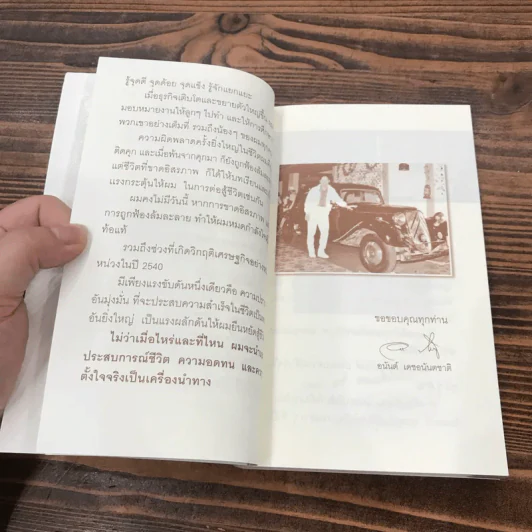 รู้จุดดี จุดด้อย จุดแข็ง รู้จักแยกแยะ
เมื่อธุรกิจเติบโตและขยายตัวใหญ่ขึ้น
มอบหมายงานให้ลูกๆ ไปทำ และให้การ
พวกเขาอย่างเต็มที่ รวมถึงน้องๆ ของ
ความผิดพลาดครั้งยิ่งใหญ่ในชีวิต
ติดคุก และเมื่อพ้นจากคุกมา ก็ยังถูกฟ้องล้ม
แต่ชีวิตที่ขาดอิสรภาพ ก็ได้ให้บทเรียน
แรงกระตุ้นให้ผม ในการต่อสู้ชีวิตเช่นกัน
ผมคงไม่มีวันนี้ หากการขาดอิสรภาพ
การถูกฟ้องล้มละลาย ทำให้ผมหมดกำลังใจ
ท้อแท้
รวมถึงช่วงที่เกิดวิกฤติเศรษฐกิจอย่าง
หน่วงในปี 2540
มีเพียงแรงขับดันหนึ่งเดียวคือ ความ
อันมุ่งมั่น ที่จะประสบความสำเร็จในชีวิต
อันยิ่งใหญ่ เป็นแรงผลักดันให้ผมยืนหยัด
ไม่ว่าเมื่อไหร่และที่ไหน ผมจะนำ
ประสบการณ์ชีวิต ความอดทน และ
ตั้งใจจริงเป็นเครื่องนำทาง
ขอขอบคุณทุกท่าน
อนันต์ เดชอนันตชาติ